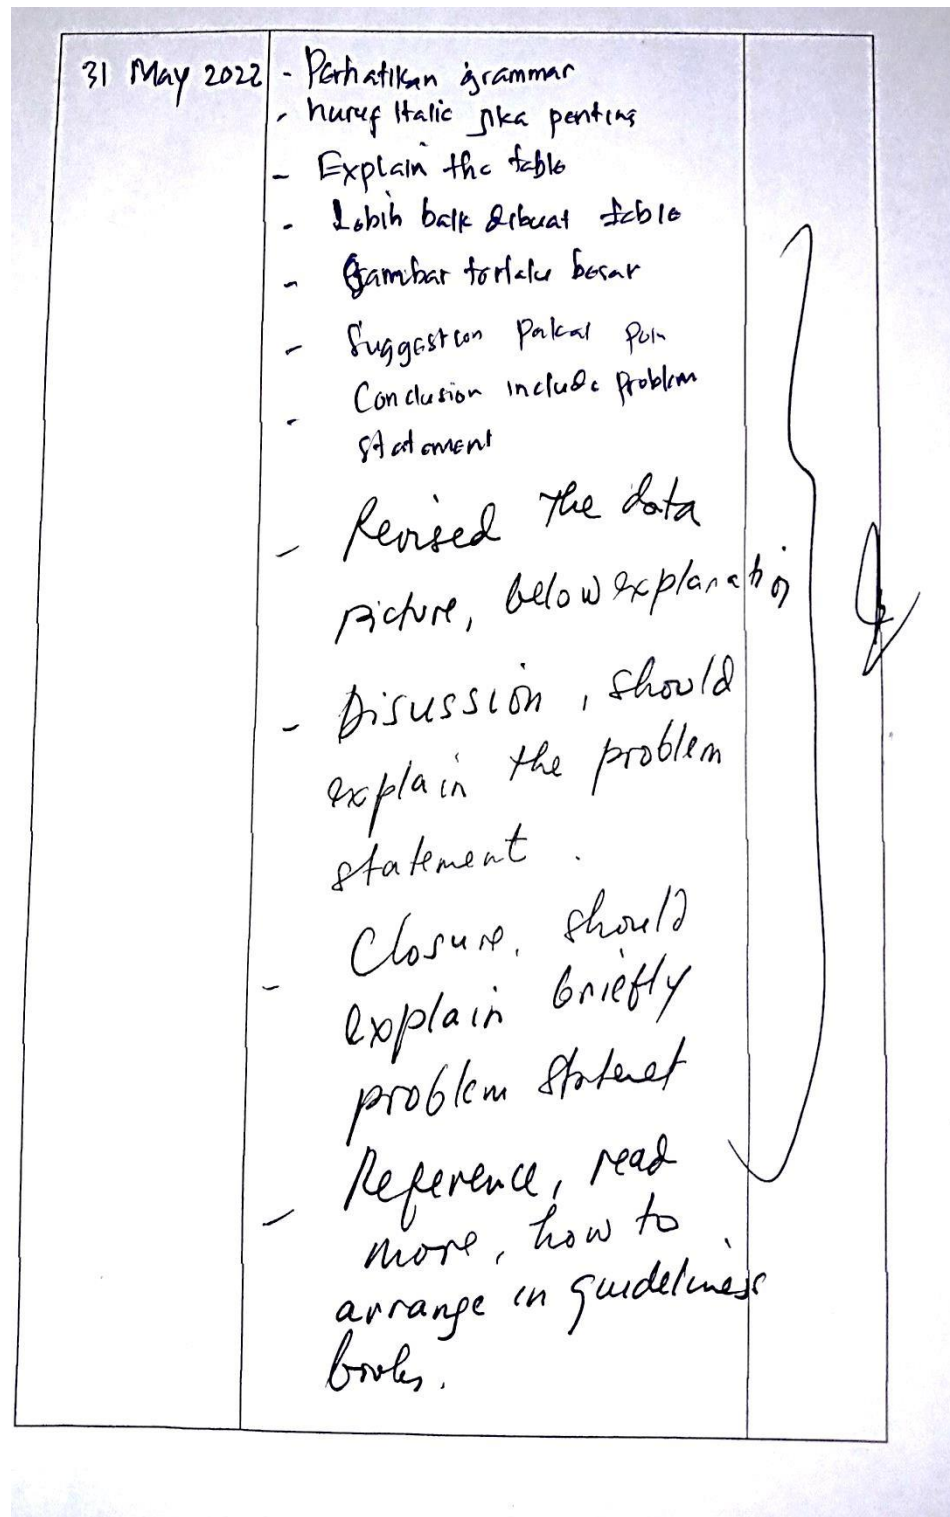 31 May 2022 - Perhatikan grammar
- huruf Italic jika penting
- Explain the table
- Lebih baik dibuat table
- Gambar terlalu besar
- Suggestion pakai poin
- Conclusion include problem
statement
- Revised the data
picture, below explanation
- Disussion, should
explain the problem
statement.
- Closure, should
explain briefly
problem statenet
- Reference, read
more, how to
arrange in guideliness
books.